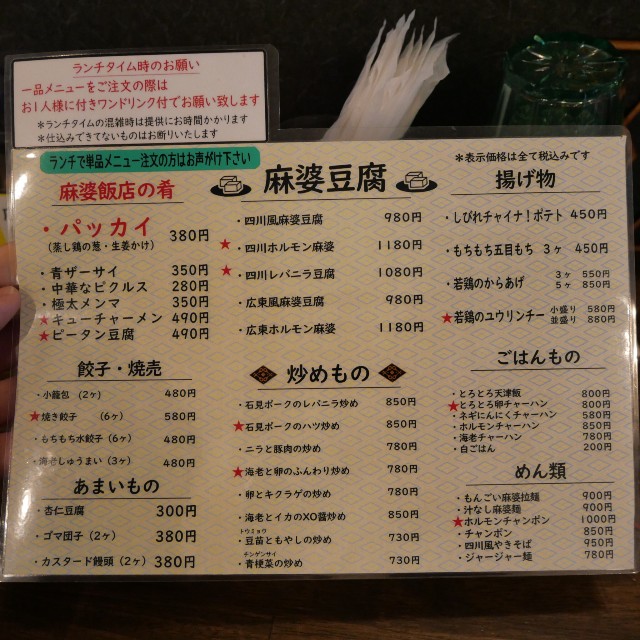 ランチタイム時のお願い
一品メニューをご注文の際は
お1人様に付きワンドリンク付でお願い致します
*ランチタイムの混雑時は提供にお時間かかります
*仕込みできてないものはお断りいたします
ランチで単品メニュー注文の方はお声がけ下さい
麻婆飯店の肴
・パッカイ 380円
(蒸し鶏の葱・生姜かけ)
・青ザーサイ 350円
・中華なピクルス 280円
・極太メンマ 350円
★キューチャーメン 490円
★ピータン豆腐 490円
餃子・焼売
・小籠包 (2ヶ) 480円
★焼き餃子 (6ヶ) 580円
・もちもち水餃子(6ヶ) 480円
・海老しゅうまい(3ヶ) 480円
あまいもの
・杏仁豆腐 300円
・ゴマ団子(2ヶ) 380円
・カスタード饅頭(2ヶ) 380円
麻婆豆腐
・四川風麻婆豆腐 980円
★・四川ホルモン麻婆 1180円
★・四川レバニラ豆腐 1080円
・広東風麻婆豆腐 980円
・広東ホルモン麻婆 1180円
炒めもの
・石見ポークのレバニラ炒め 850円
★石見ポークのハツ炒め 850円
・ニラと豚肉の炒め 780円
★海老と卵のふんわり炒め 780円
・卵とキクラゲの炒め 780円
・海老とイカのXO醬炒め 850円
トウミョウ
・豆苗ともやしの炒め 730円
チンゲンサイ
・青梗菜の炒め 730円
*表示価格は全て税込みです
揚げ物
・しびれチャイナ!ポテト 450円
・もちもち五目もち 3ヶ 450円
・若鶏のからあげ 3ヶ 550円
5ヶ 850円
★若鶏のユウリンチー 小盛り 580円
並盛り 880円
ごはんもの
・とろとろ天津飯 800円
★とろとろ卵チャーハン 800円
・ネギにんにくチャーハン 580円
・ホルモンチャーハン 800円
・海老チャーハン 780円
・白ごはん 200円
めん類
・もんごい麻婆拉麺 900円
・汁なし麻婆麺 900円
★ホルモンチャンポン 1000円
・チャンポン 850円
・四川風やきそば 950円
・ジャージャー麺 780円